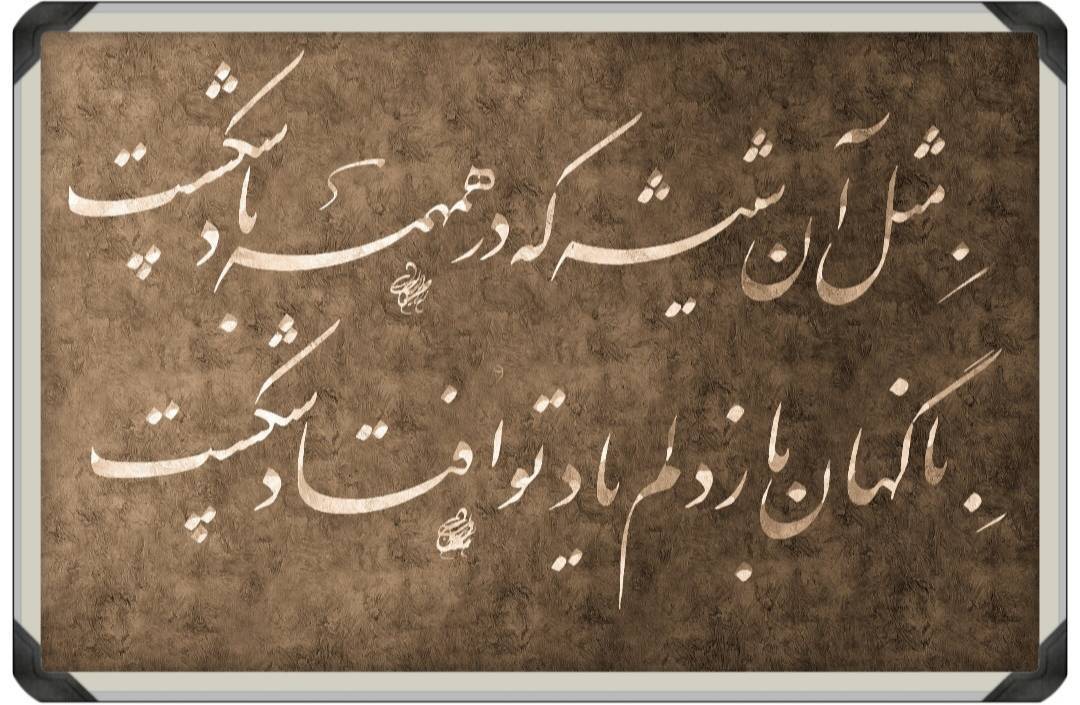 مثل آن شیشه که در همهمهٔ باد شکست
ناگهان باز دلم یاد تو افتاد شکست